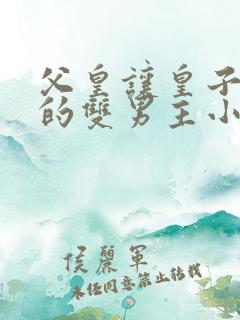 父皇讓皇子
的雙男主小
侯麗軍
未经同意禁止转载